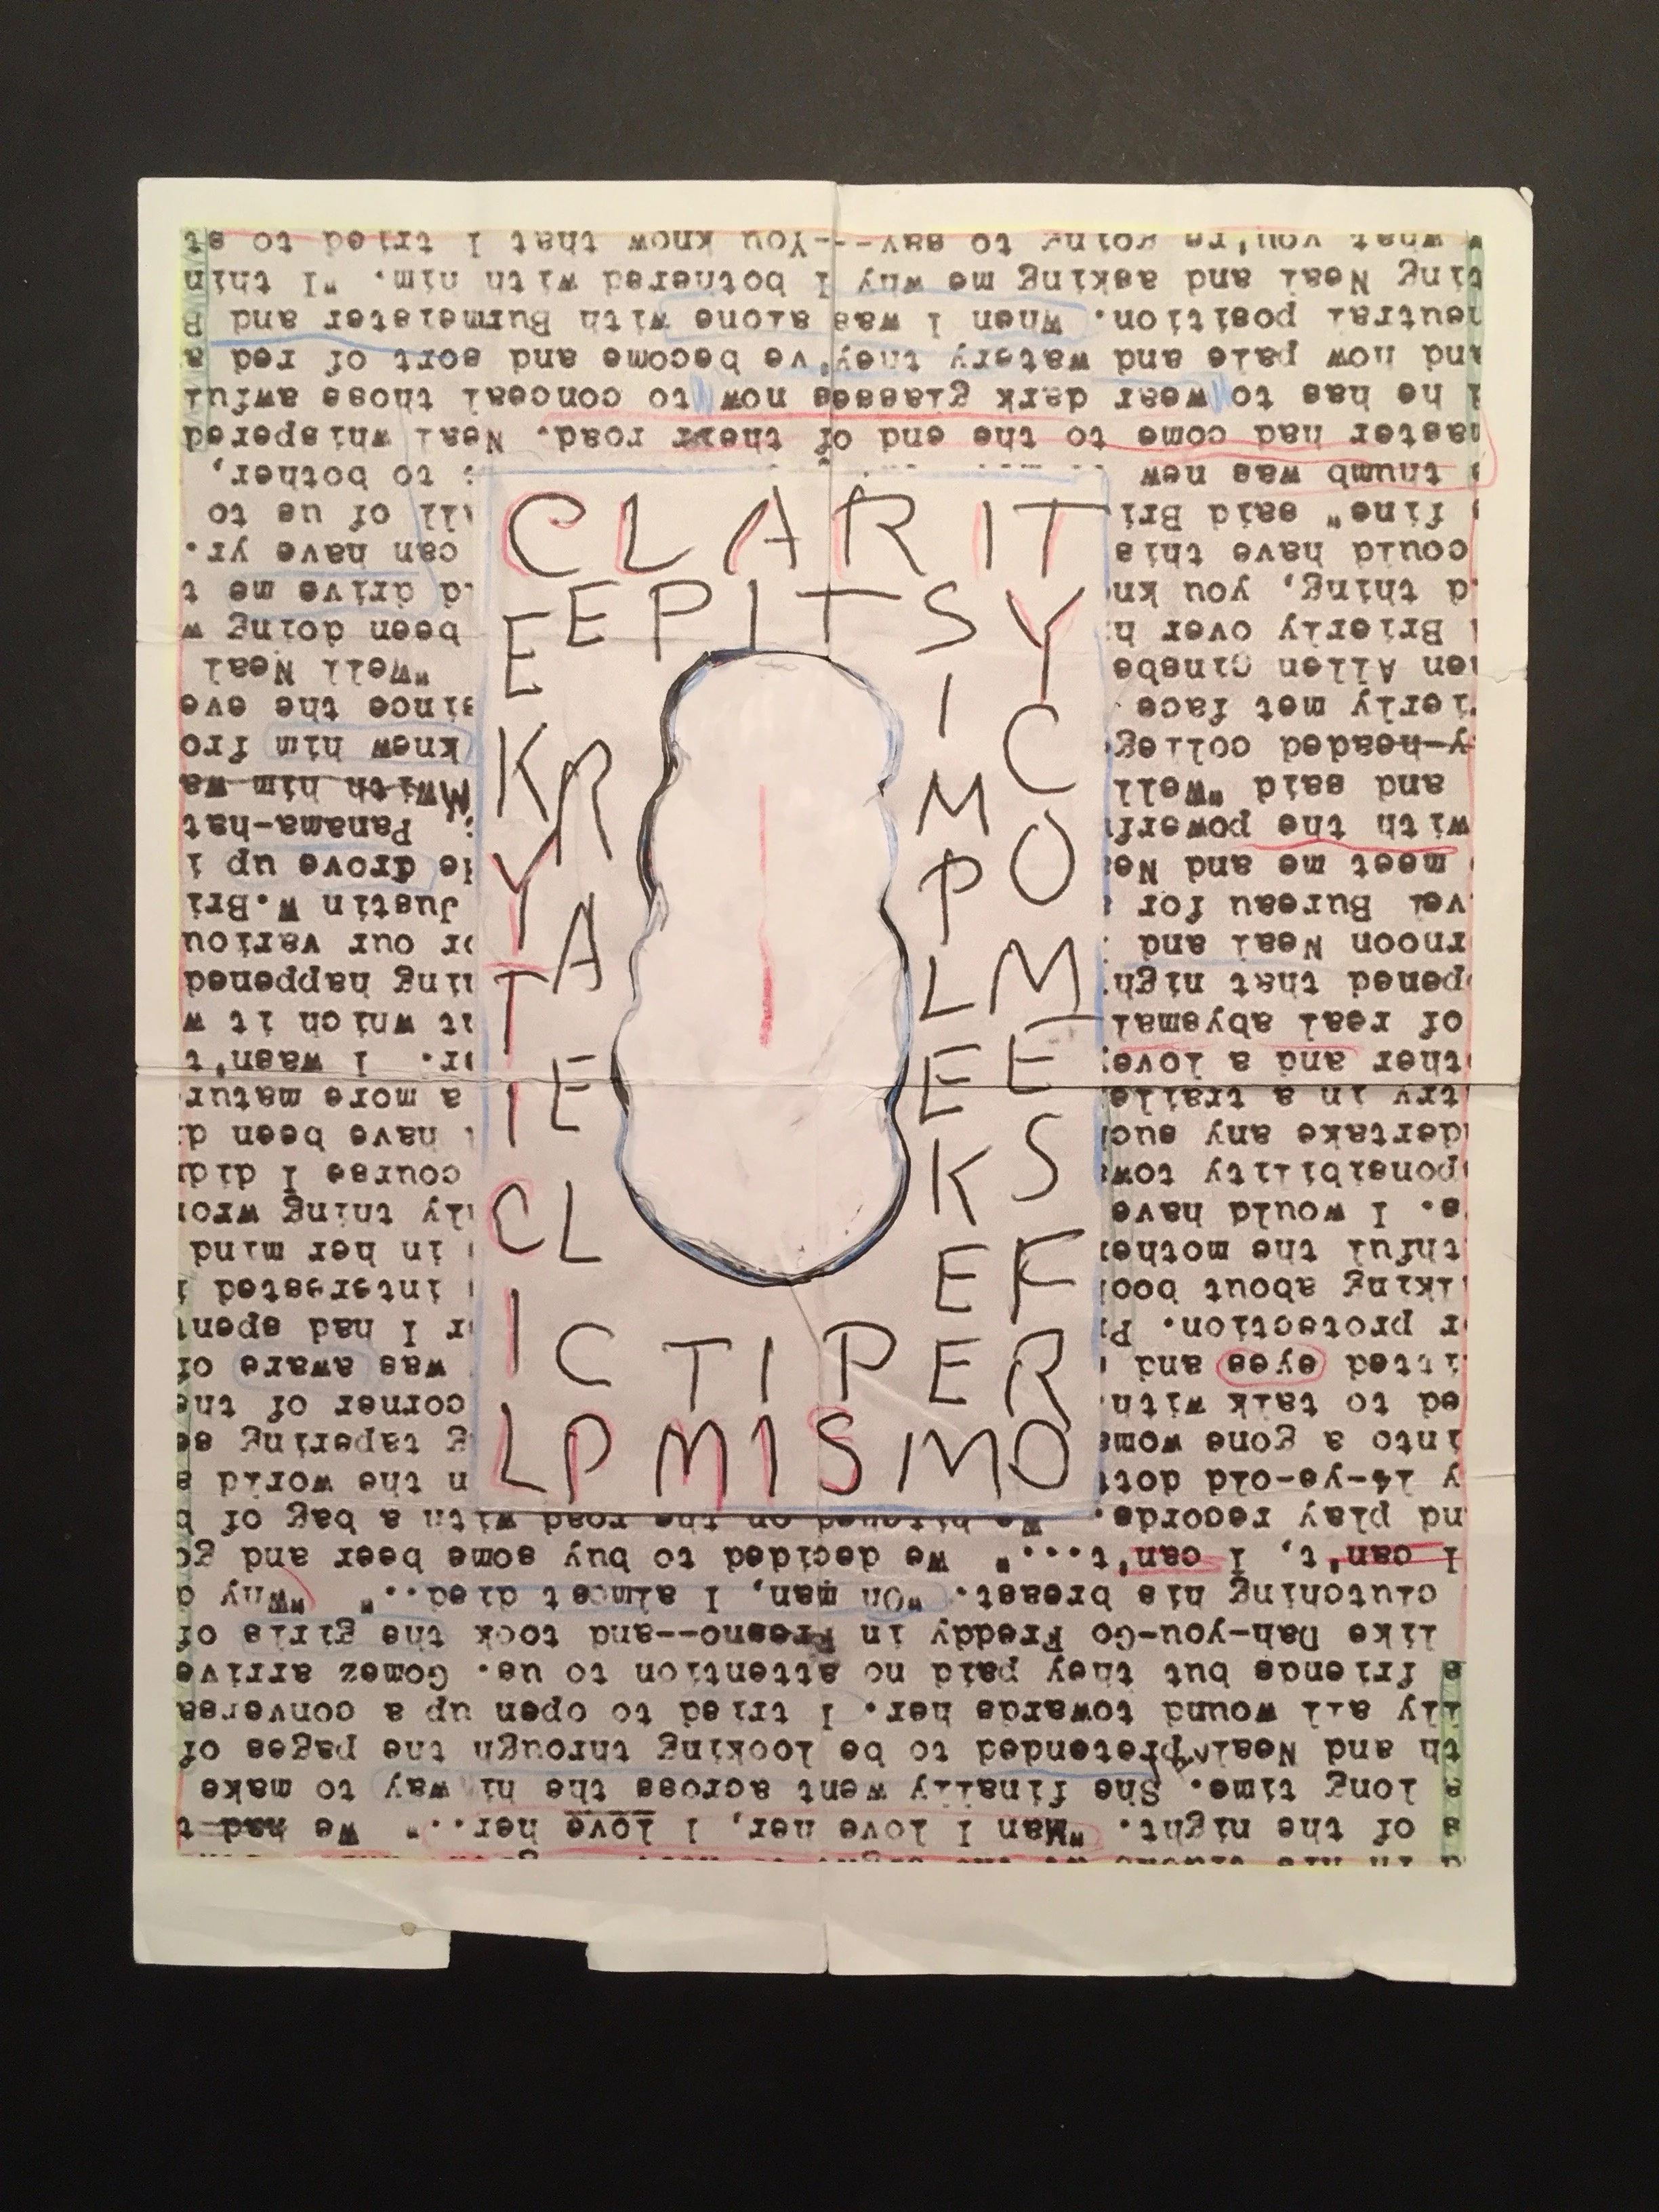 CLARITY COMES FROM SIMPLICITY KEEP IT SIMPLE KEEP IT CLEAR
s of the night. "Man I love her, I love her.." We had t
a long time. She finally went across the hiway to make
th and Neal pretended to be looking through the pages of
lly all wound towards her. I tried to open up a conversa
s friends but they paid no attention to us. Gomez arrive
like Dah-you-Go Freddy in Fresno--and took the girls of
clutching his breast. "Oh man, I almost died.." "Why d
I can't, I can't..." We decided to buy some beer and go
nd play records. We hitched on the road with a bag of b
y 14-ye-old dott n the world s
into a gone woma g tapering se
ed to talk with corner of the
itted eyes and was aware of
r protection. P r I had spent
lking about boo interested i
thful the mother in her mind
s. I would have ly thing wron
ponsibility tow course I did
dertake any suc have been d
try in a traile a more matur
ther and a love or. I wasn't
of real abysmal at which it w
pened that nigh ning happened
rnoon Neal and or our variou
vel Bureau for Justin W.Bri
meet me and Ne He drove up i
with the powerf Panama-hat
and said "Well MWith him wa
y-headed colleg knew him fro
ierly met face since the eve
en Allen Ginsbe "Well Neal
Brierly over h been doing w
d thing, you kn d drive me t
could have this can have yr.
fine" said Bri all of us to
thumb was new to bother,
master had come to the end of their road. Neal whispered
he has to wear dark glasses now to conceal those awful
and now pale and watery they've become and sort of red a
neutral position. When I was alone with Burmeister and B
ting Neal and asking me why I bothered with him. "I thin
w what you're going to say---You know that I tried to st